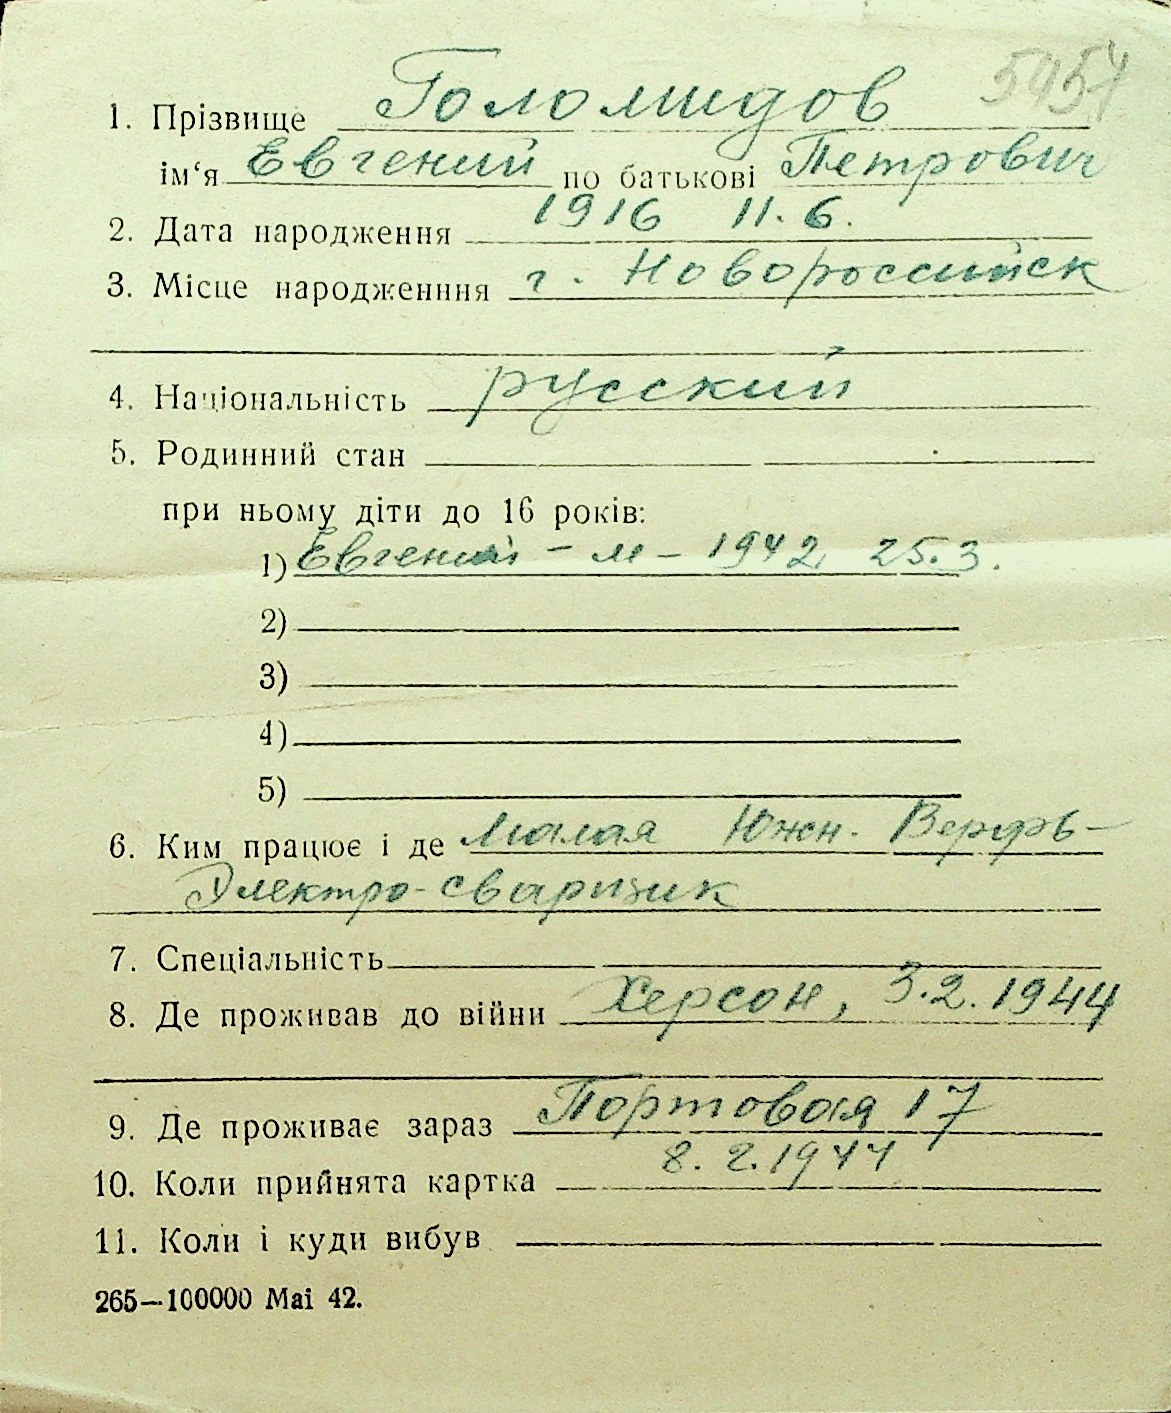 5957
1. Прізвище Голомидов
ім‘я Евгений по батькові Петрович
2. Дата народження 1916 11.6.
3. Місце народженння г. Новороссийск
4. Національність русский
5. Родинний стан
при ньому діти до 16 років:
1) Евгений – м – 1942 25.3.
2)
3)
4)
5)
6. Ким працює і де Малая Южн. Верфь –
Электро-сварщик
7. Спеціальність
8. Де проживав до війни Херсон, 3.2.1944
9. Де проживає зараз Портовая 17
10. Коли прийнята картка 8.2.1944
11. Коли і куди вибув
265—100000 Mai 42.